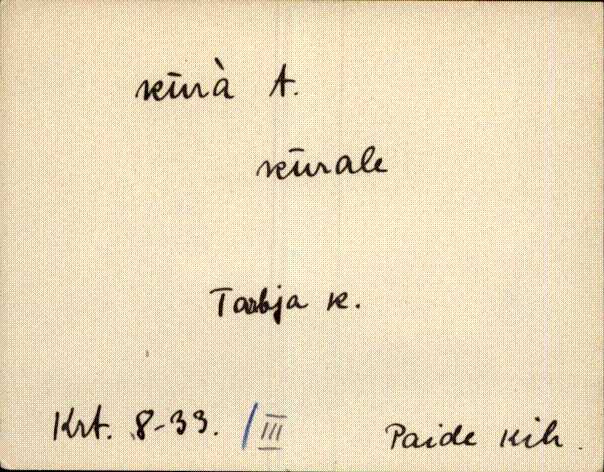 kūrà A.
kūrale
Tarbja k.
Krt. 8-33. /III Paide kih.